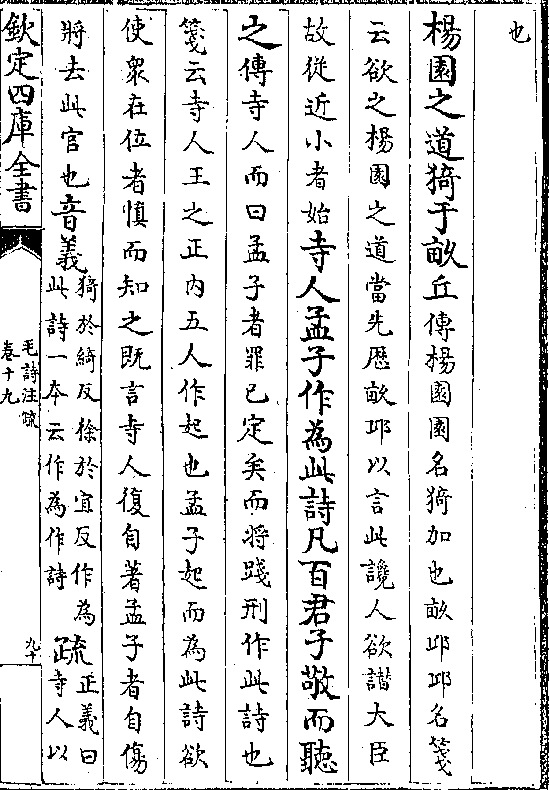 也
楊園之道猗于畝丘傳楊園園名猗加也畝邱邱名箋
云欲之楊園之道當先歴畝邱以言此讒人欲譖大臣
故從近小者始寺人孟子作為此詩凡百君子敬而聽
之傳寺人而曰孟子者罪已定矣而將踐刑作此詩也
箋云寺人王之正内五人作起也孟子起而為此詩欲
使衆在位者慎而知之既言寺人復自著孟子者自傷
將去此官也音義猗於綺反徐於宜反作為
此詩一本云作為作詩疏正義曰
寺人以
欽定四庫全書
毛詩注疏
卷十九
九十